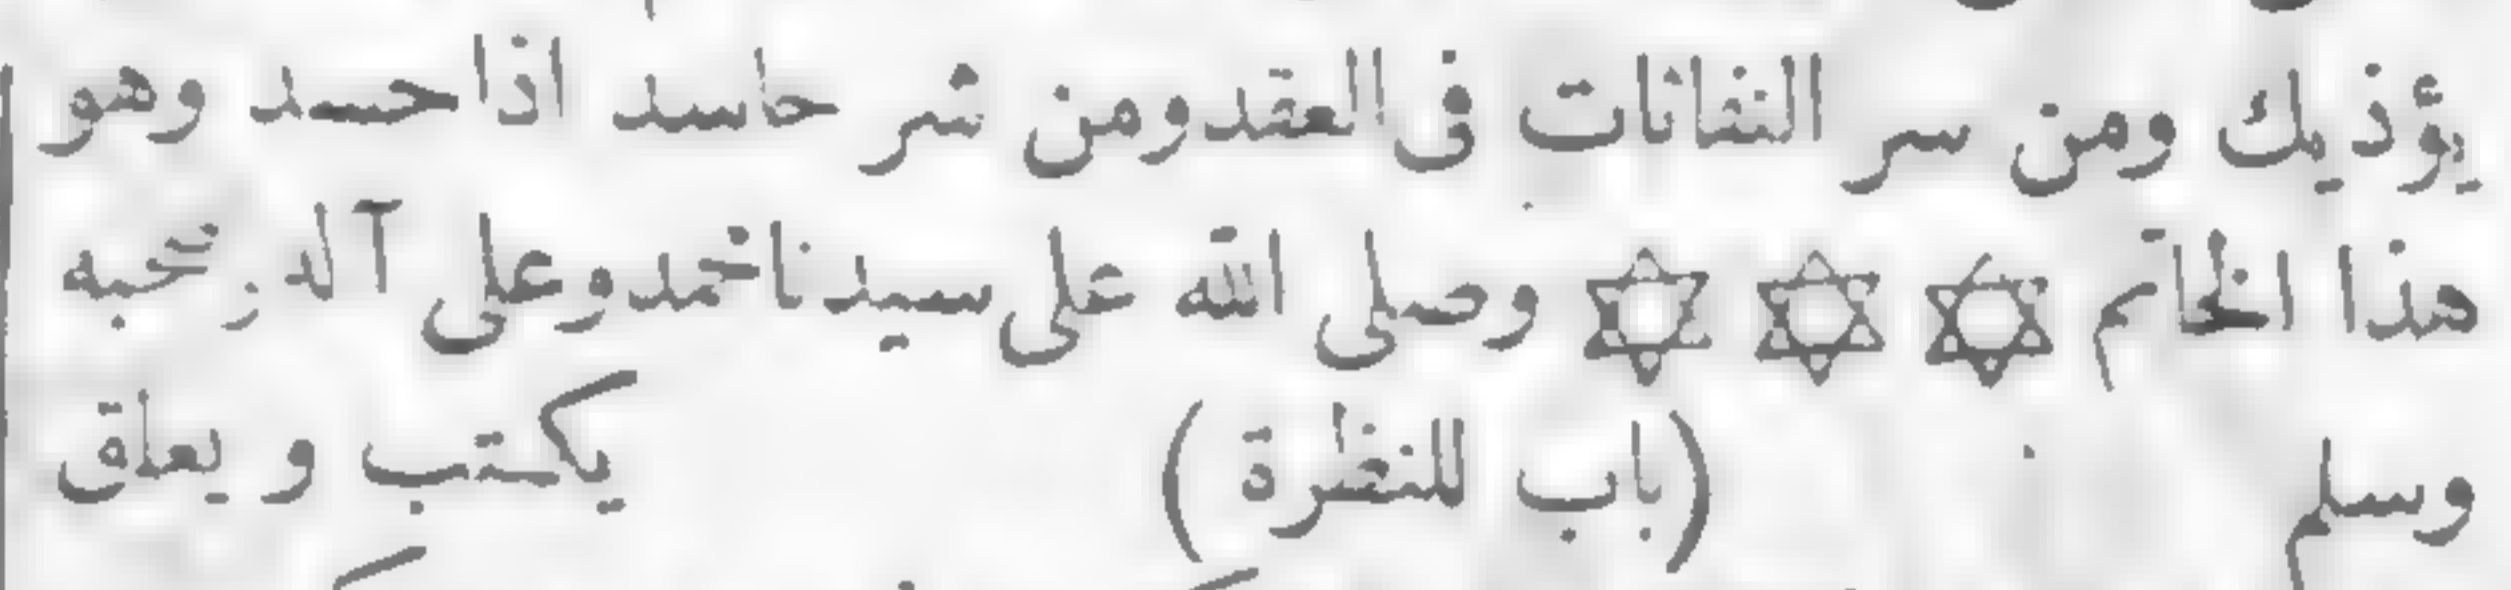 يؤذيك ومن سر النفاثات فى العقد ومن شر حاسد اذا حسد وهو
هذا الخاتم ✡ ✡ ✡ وصلى الله على سيدنا محمد وعلى آله وصحبه
وسلم (باب للنظرة) يكتب و يعلق